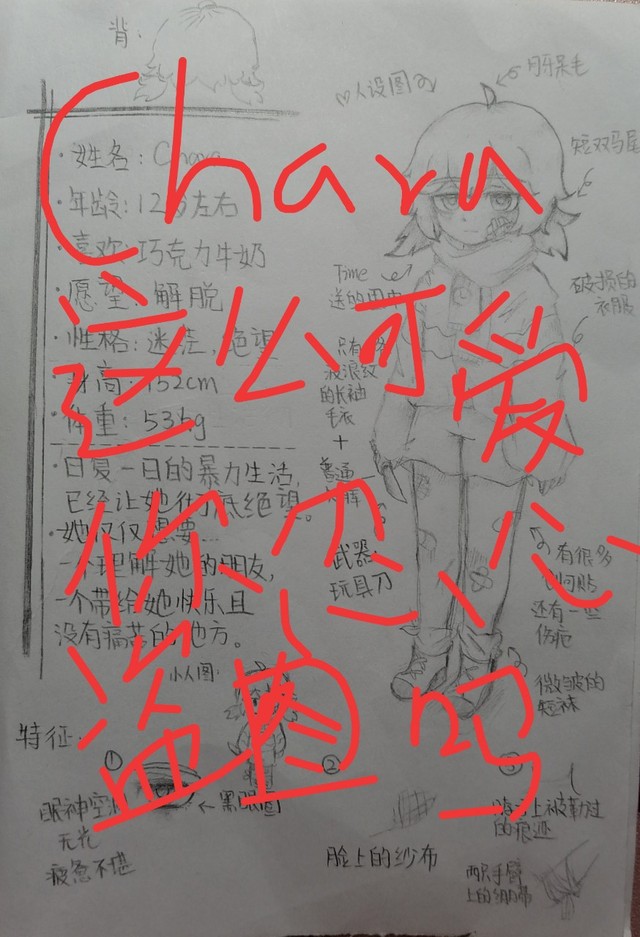 背:
人设图
月牙呆毛
短双马尾
·姓名: Chara
·年龄: 12岁左右
·喜欢: 巧克力牛奶
·愿望: 解脱
·性格: 迷茫、绝望
·身高: 152cm
·体重: 53kg
Time
送的
破损的
衣服
只有
波浪纹
的长袖
毛衣
+
普通
武器:
玩具刀
·日复一日的暴力生活,
已经让她
绝望。
·她仅仅需要...
一个理解她的朋友,
一个带给她快乐且
没有痛苦的地方。
有很多
创可贴
还有一些
伤疤
微皱的
短袜
小人图:
特征:
①
②
③
眼神空洞
无光
疲惫不堪
←黑眼圈
脸上的纱布
上被勒过
的痕迹
两只手臂
上的绷带
Chara
这么可爱
你忍心
盗图吗